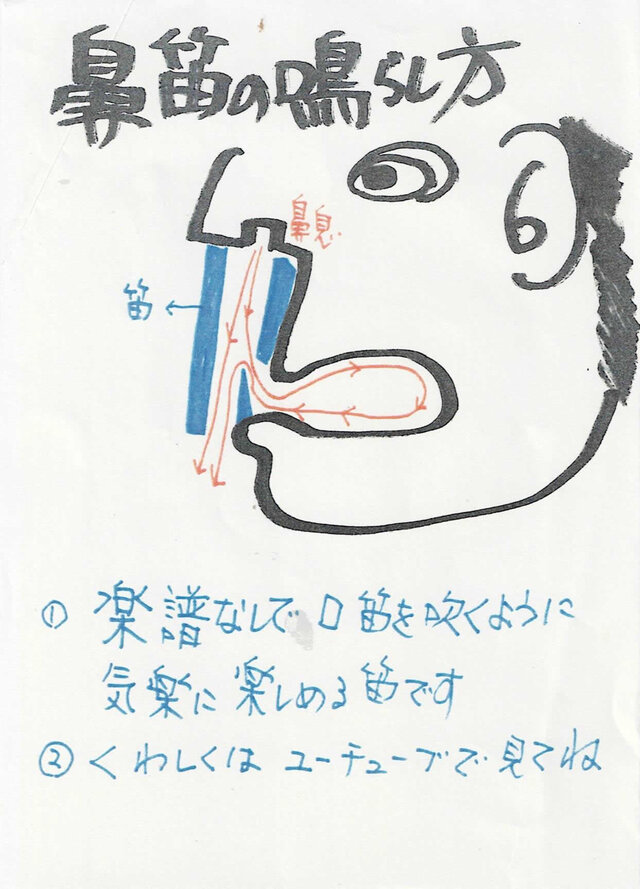 鼻笛の鳴らし方
鼻息
笛
① 楽譜なしで口笛を吹くように
気楽に楽しめる笛です
② くわしくは ユーチューブで見てね